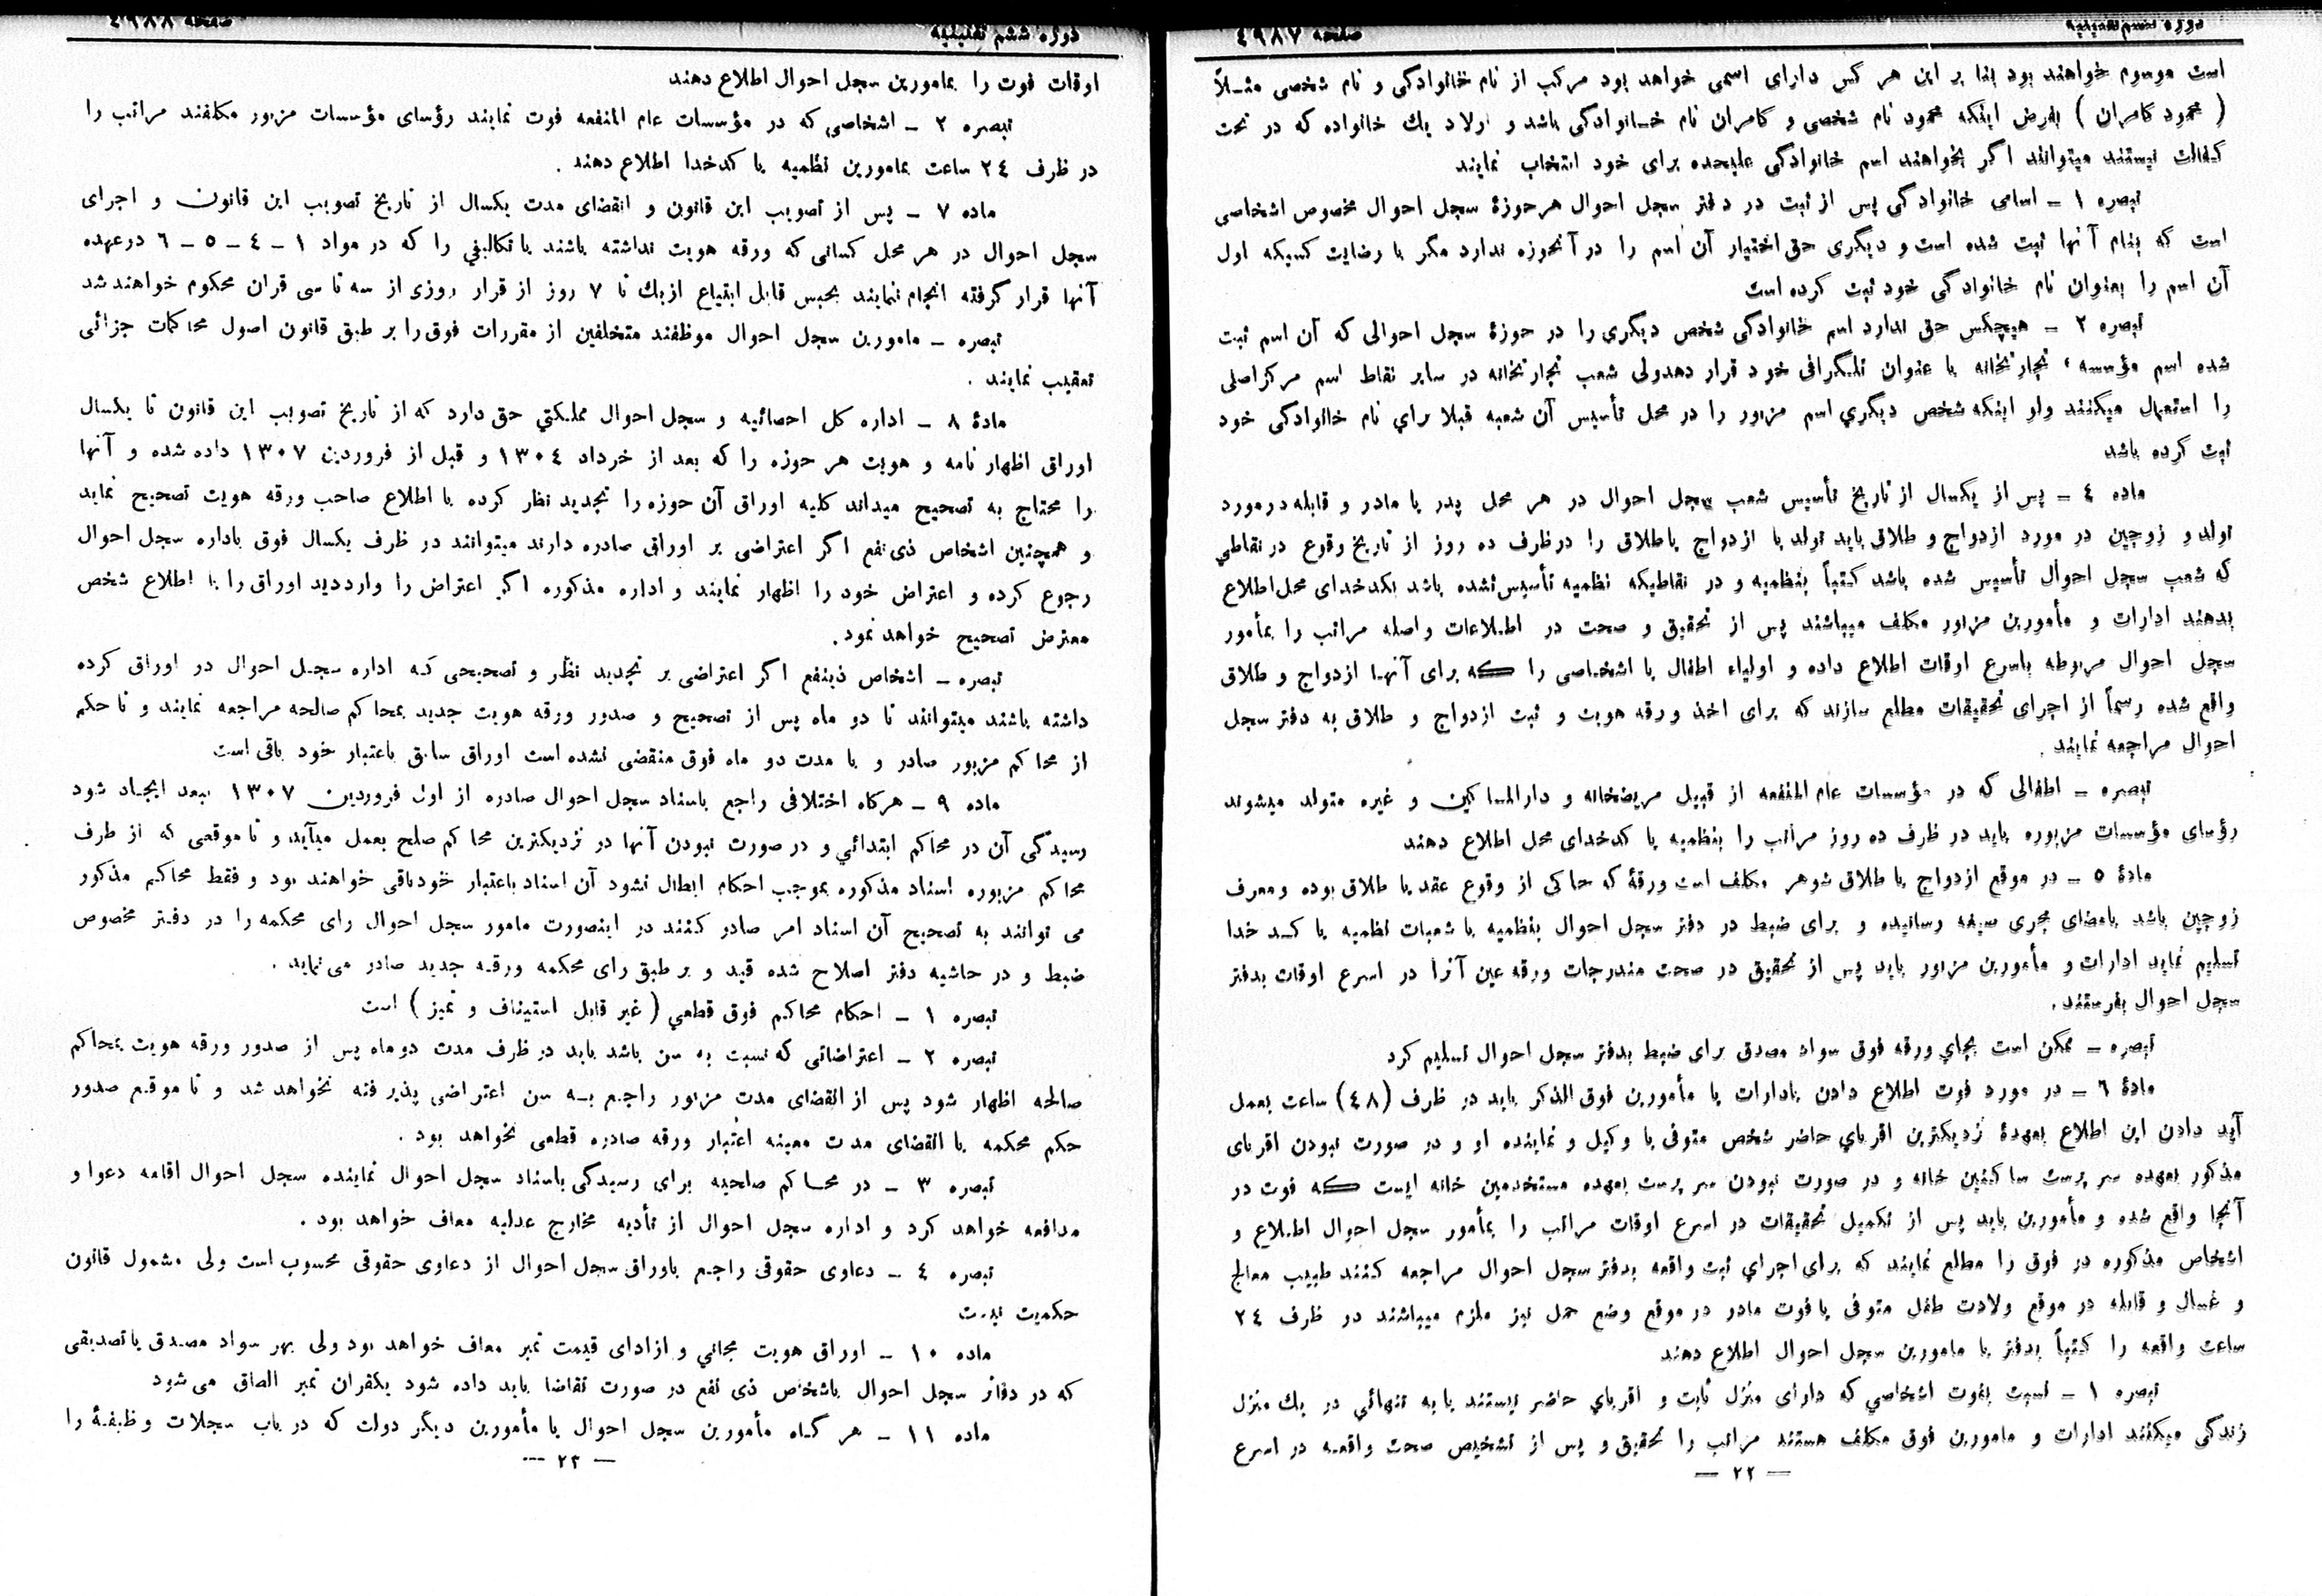 دوره ششم تقنینیه
صفحه ٤٩٨٧
است موسوم خواهند بود بنا بر این هر کس دارای اسمی خواهد بود مرکب از نام خانوادگی و نام شخصی مثـلاً
( محمود کامران ) بفرض اینکه محمود نام شخصی و کامران نام خـانوادگی باشد و اولاد یك خانواده که در تحت
کفالت نیستند میتوانند اگر بخواهند اسم خانوادگی علیحده برای خود انتخاب نمایند
تبصره ١ ـ اسامی خانوادگی پس از ثبت در دفتر سجل احوال هرحوزهٔ سجل احوال مخصوص اشخاصی
است که بنام آنها ثبت شده است و دیگری حق اختیار آن اسم را در آنحوزه ندارد مگر با رضایت کسیکه اول
آن اسم را بعنوان نام خانوادگی خود ثبت کرده است
تبصره ٢ ـ هیچکس حق ندارد اسم خانوادگی شخص دیگری را در حوزهٔ سجل احوالی که آن اسم ثبت
شده اسم مؤسسه ، تجارتخانه یا عنوان تلگرافی خود قرار دهد ولی شعب تجارتخانه در سایر نقاط اسم مرکز اصلی
را استعمال میکنند ولو اینکه شخص دیگري اسم مزبور را در محل تأسیس آن شعبه قبلا براي نام خانوادگی خود
ثبت کرده باشد
ماده ٤ ـ پس از یکسال از تاریخ تأسیس شعب سجل احوال در هر محل پدر یا مادر و قابله در مورد
تولد و زوجین در مورد ازدواج و طلاق باید تولد یا ازدواج یا طلاق را در ظرف ده روز از تاریخ وقوع در نقاطي
که شعب سجل احوال تأسیس شده باشد کتباً بنظمیه و در نقاطیکه نظمیه تأسیس نشده باشد بکدخدای محل اطلاع
بدهند ادارات و مأمورین مزبور مکلف میباشند پس از تحقیق و صحت در اطلاعات واصله مراتب را بمأمور
سجل احوال مربوطه باسرع اوقات اطلاع داده و اولیاء اطفال یا اشخـاصی را که برای آنهـا ازدواج و طلاق
واقع شده رسماً از اجرای تحقیقات مطلع سازند که برای اخذ ورقه هویت و ثبت ازدواج و طلاق به دفتر سجل
احوال مراجعه نمایند .
تبصره ـ اطفالی که در مؤسسات عام المنفعه از قبیل مریضخانه و دارالمساکین و غیره متولد میشوند
رؤسای مؤسسات مزبوره باید در ظرف ده روز مراتب را بنظمیه یا کدخدای محل اطلاع دهند
مادهٔ ٥ ـ در موقع ازدواج یا طلاق شوهر مکلف است ورقهٔ که حاکی از وقوع عقد یا طلاق بوده و معرف
زوجین باشد بامضای مجری صیغه رسانیده و برای ضبط در دفتر سجل احوال بنظمیه یا شعبات نظمیه یا کـد خدا
تسلیم نماید ادارات و مأمورین مزبور باید پس از تحقیق در صحت مندرجات ورقه عین آنرا در اسرع اوقات بدفتر
سجل احوال بفرستند .
تبصره ـ ممکن است بجاي ورقه فوق سواد مصدق برای ضبط بدفتر سجل احوال تسلیم کرد
مادهٔ ٦ ـ در مورد فوت اطلاع دادن بادارات یا مأمورین فوق الذکر باید در ظرف (٤٨) ساعت بعمل
آید دادن این اطلاع بعهدهٔ نزدیکترین اقرباي حاضر شخص متوفی یا وکیل و نماینده او و در صورت نبودن اقربای
مذکور بعهده سرپرست ساکنین خانه و در صورت نبودن سرپرست بعهده مستخدمین خانه ایست که فوت در
آنجا واقع شده و مأمورین باید پس از تکمیل تحقیقات در اسرع اوقات مراتب را بمأمور سجل احوال اطـلاع و
اشخاص مذکوره در فوق را مطلع نمایند که برای اجراي ثبت واقعه بدفتر سجل احوال مراجعه کنند طبیب معالج
و غسال و قابله در موقع ولادت طفل متوفی یا فوت مادر در موقع وضع حمل نیز ملزم میباشند در ظرف ٢٤
ساعت واقعه را کتباً بدفتر یا مامورین سجل احوال اطلاع دهند
تبصره ١ ـ نسبت بفوت اشخاصي که دارای منزل ثابت و اقرباي حاضر نیستند یا به تنهائي در یك منزل
زندگی میکنند ادارات و مامورین فوق مکلف هستند مراتب را تحقیق و پس از تشخیص صحت واقعـه در اسرع
— ٢٢ —
دوره ششم تقنینیه
صفحه ٤٩٨٨
اوقات فوت را بمامورین سجل احوال اطلاع دهند
تبصره ٢ ـ اشخاصی که در مؤسسات عام المنفعه فوت نمایند رؤسای مؤسسات مزبور مکلفند مراتب را
در ظرف ٢٤ ساعت بمامورین نظمیه یا کدخدا اطلاع دهند .
ماده ٧ ـ پس از تصویب این قانون و انقضای مدت یکسال از تاریخ تصویب این قانون و اجرای
سجل احوال در هر محل کسانی که ورقه هویت نداشته باشند یا تکالیفي را که در مواد ١ ـ ٤ ـ ٥ ـ ٦ درعهده
آنها قرار گرفته انجام ننمایند بحبس قابل ابتیاع از یك تا ٧ روز از قرار روزی از سه تا سی قران محکوم خواهند شد
تبصره ـ مامورین سجل احوال موظفند متخلفین از مقررات فوق را بر طبق قانون اصول محاکمات جزائی
تعقیب نمایند .
مادهٔ ٨ ـ اداره کل احصائیه و سجل احوال مملکتي حق دارد که از تاریخ تصویب این قانون تا یکسال
اوراق اظهار نامه و هویت هر حوزه را که بعد از خرداد ١٣٠٤ و قبل از فروردین ١٣٠٧ داده شده و آنها
را محتاج به تصحیح میداند کلیه اوراق آن حوزه را تجدید نظر کرده با اطلاع صاحب ورقه هویت تصحیح نماید
و همچنین اشخاص ذی نفع اگر اعتراضی بر اوراق صادره دارند میتوانند در ظرف یکسال فوق باداره سجل احوال
رجوع کرده و اعتراض خود را اظهار نمایند و اداره مذکوره اگر اعتراض را وارد دید اوراق را با اطلاع شخص
معترض تصحیح خواهد نمود .
تبصره ـ اشخاص ذینفع اگر اعتراضی بر تجدید نظر و تصحیحی که اداره سجـل احوال در اوراق کرده
داشته باشند میتوانند تا دو ماه پس از تصحیح و صدور ورقه هویت جدید بمحاکم صالحه مراجعه نمایند و تا حکم
از محاکم مزبور صادر و یا مدت دو ماه فوق منقضی نشده است اوراق سابق باعتبار خود باقی است
ماده ٩ ـ هرگاه اختلافی راجع باسناد سجل احوال صادره از اول فروردین ١٣٠٧ ببعد ایجـاد شود
رسیدگی آن در محاکم ابتدائي و در صورت نبودن آنها در نزدیکترین محاکم صلح بعمل میآید و تا موقعی که از طرف
محاکم مزبوره اسناد مذکوره بموجب احکام ابطال نشود آن اسناد باعتبار خود باقی خواهند بود و فقط محاکم مذکور
می توانند به تصحیح آن اسناد امر صادر کنند در اینصورت مامور سجل احوال رای محکمه را در دفـتر مخصوص
ضبط و در حاشیه دفتر اصلاح شده قید و بر طبق رای محکمه ورقـه جدید صادر می نماید .
تبصره ١ ـ احکام محاکم فوق قطعي ( غیر قابل استیناف و تمیز ) است
تبصره ٢ ـ اعتراضاتی که نسبت به سن باشد باید در ظرف مدت دو ماه پس از صدور ورقه هویت بمحاکم
صالحه اظهار شود پس از انقضای مدت مزبور راجـع بـه سن اعتراضی پذیرفته نخواهد شد و تا موقـع صدور
حکم محکمه یا انقضای مدت معینه اعتبار ورقه صادره قطعی نخواهد بود .
تبصره ٣ ـ در محـاکم صلحیه برای رسیدگی باسناد سجل احوال نماینده سجل احوال اقامه دعوا و
مدافعه خواهد کرد و اداره سجل احوال از تأدیه مخارج عدلیه معاف خواهد بود .
تبصره ٤ ـ دعاوی حقوقی راجـع باوراق سجل احوال از دعاوی حقوقی محسوب است ولی مشمول قانون
حکمیت نیست
ماده ١٠ ـ اوراق هویت مجاني و از ادای قیمت تمبر معاف خواهد بود ولی بهر سواد مصدق یا تصدیقی
که در دفاتر سجل احوال باشخاص ذی نفع در صورت تقاضا باید داده شود یکقران تمبر الصاق می شود
ماده ١١ ـ هر گـاه مأمورین سجل احوال یا مأمورین دیگر دولت که در باب سجلات وظیفهٔ را
— ٢٣ —